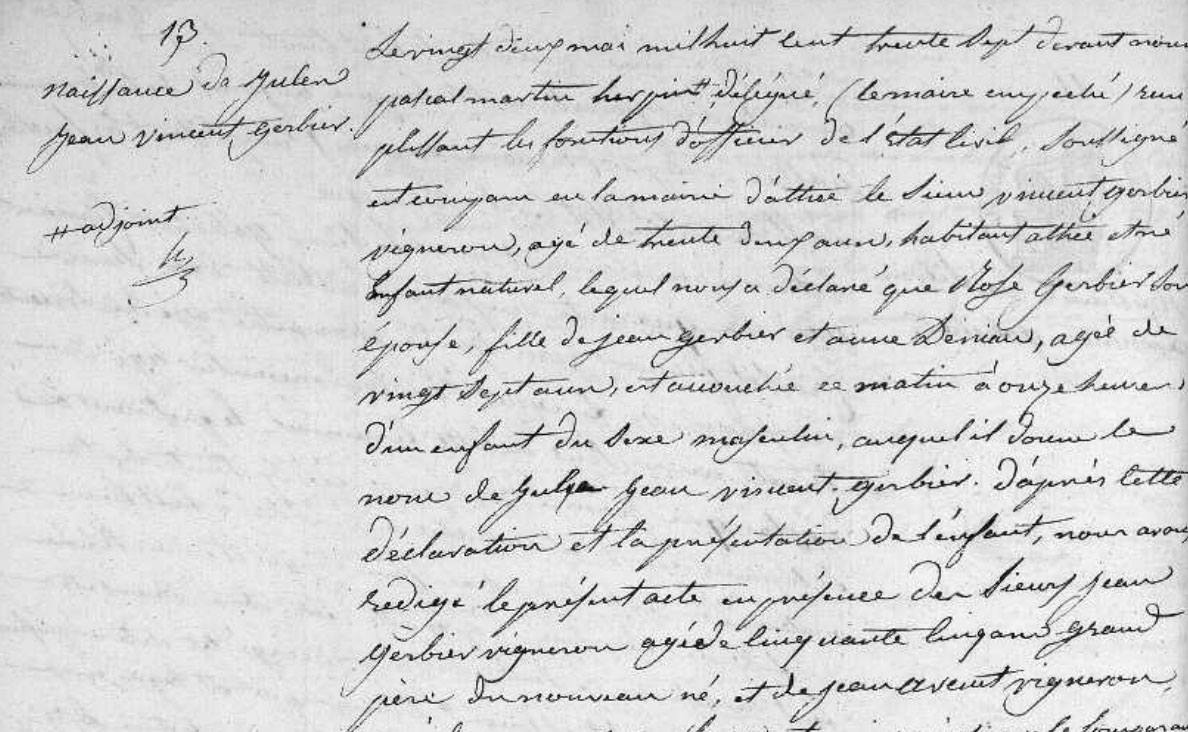 13.
naissance de Jules
Jean vincent gerbier.
# adjoint
Le vingt deux mai mil huit cent trente sept devant nous
pascal martin herpin # délégué, (le maire empeché) rem
plissant les fonctions d'officier de l'état Civil, soussigné
est comparu en la mairie d'athée le sieur vincent gerbier
vigneron, agé de trente deux ans, habitant athée et né
Enfant naturel, lequel nous a déclaré que Rose Gerbier Son
épouse, fille de jean gerbier et anne Deniau, agée de
vingt Sept ans, est accouchée ce matin à onze heures,
d'un enfant du Sexe masculin, auquel il donne le
nom de Jules Jean vincent gerbier. D'après Cette
déclaration et la présentation de l'enfant, nous avons
redigé le présent acte en présence des Sieurs jean
gerbier vigneron agé de Cinquante Cinq ans grand
père du nouveau né, et de jean avenet vigneron,